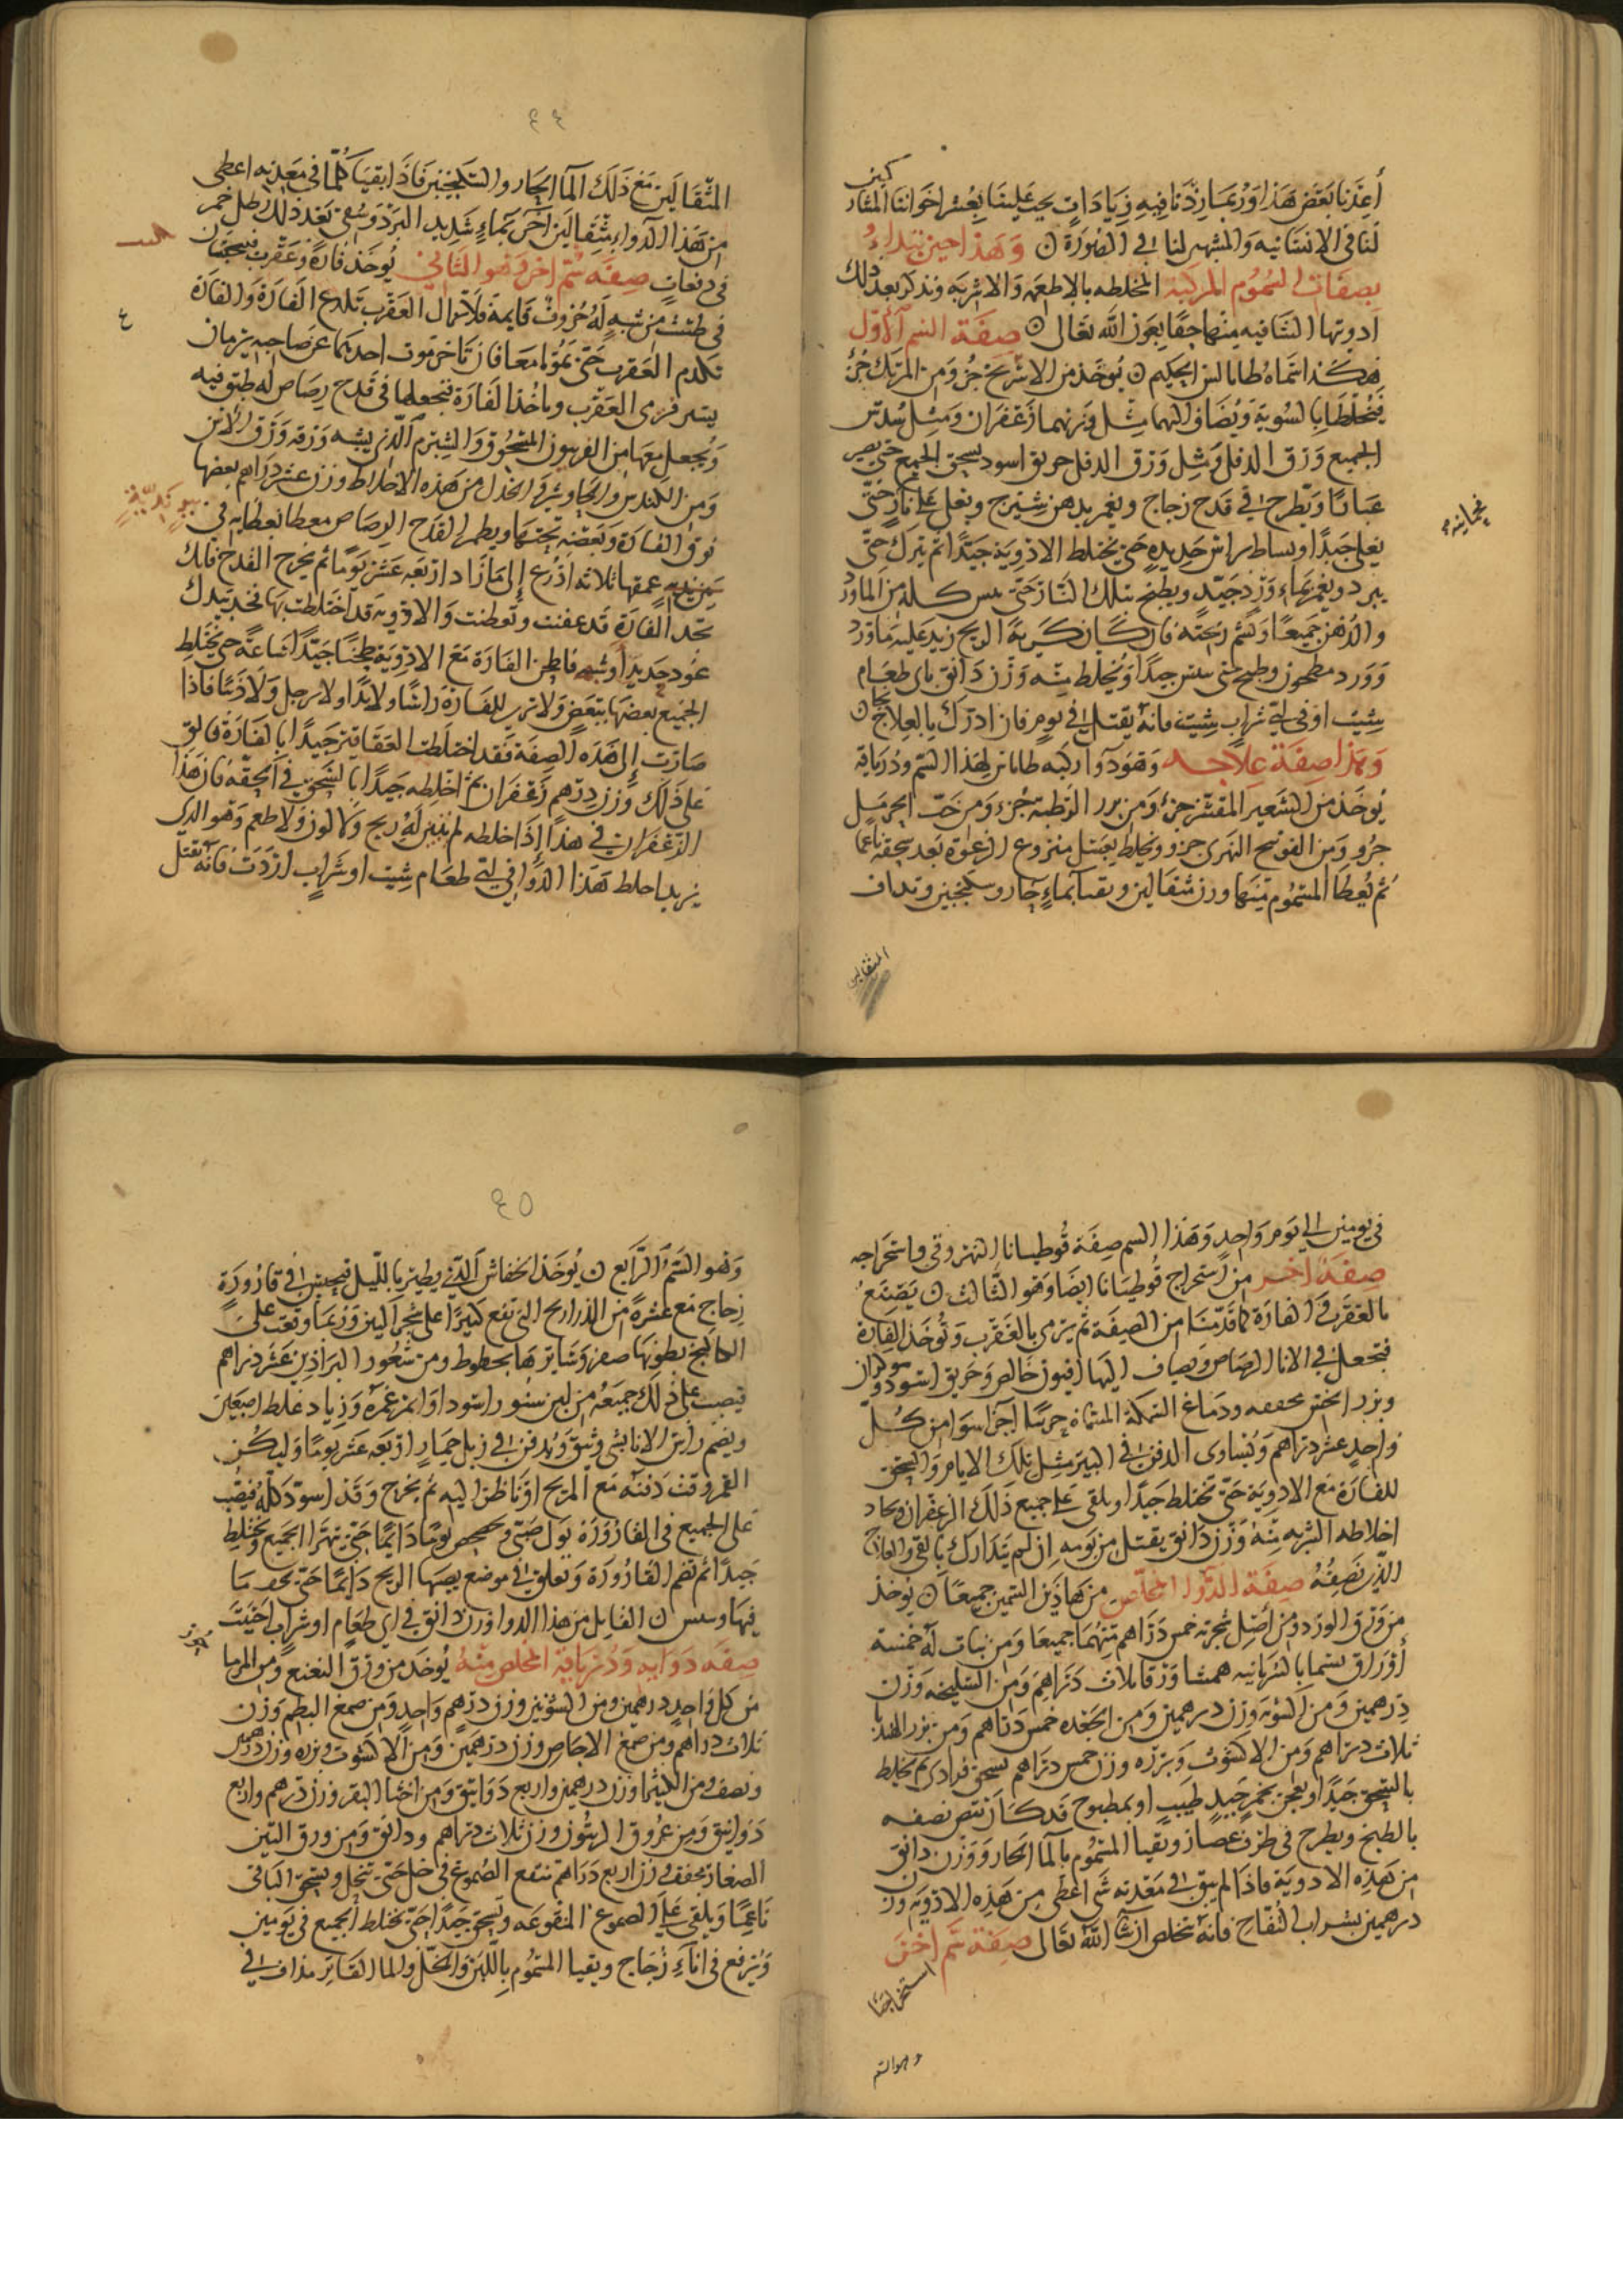 أعذنا بعض هذا وربما زدنا فيه زيادات يجب علينا بعشر اخواننا المشار
لنا في الانسانيه والمشبهين لنا في الصورة وهذا حين نبتداء
بصفات السموم المركبة المخلطه بالاطعمه والاشربه ونذكر بعد ذلك
ادويتها الشافيه منها حقا بعون الله تعالى صفة السم الاول
هكذا سماه طابالين الحكيم يؤخذ من الاشريخ جزؤ ومن المرتك جزؤ
فيخلطا بالسوية ويضاف اليهما مثل وزنهما زعفران ومثل سدس
الجميع ورق الدفلي ومثل ورق الدفلى خربق اسود يسحق الجميع حتى يصير
غبارا ويطرح في قدح زجاج ويغمر بدهن شيرج ويغلى على نار حتى
يغلى جيدا ويساط براس حديده حتى يختلط الادوية جيدا ثم يترك حتى
يبرد ويغمر بماء ورد جيد ويطبخ بتلك النار حتى كله من الماورد
والدهن جميعا ويشم ريحته فان كان كرية الريح زيد عليه ماورد
وورد مطحون وطبخ حتى جيدا ويخلط منه وزن دانق باي طعام
شيت او في اي شراب شيت فانه يقتل في يوم فان ادرك بالعلاج نجا
وهذا صفة علاجه وهو دوآ ركبه طابان لهذا السم ودرياقه
يؤخذ من الشعير المقشر جزؤ ومن بزر الرطبة جزء ومن حب الحرمل
جزو ومن الفوتنج النهرى جزو ويخلط بعسل منزوع الرغوة بعد سحقه ناعما
ثم يعطا المسموم منها وزن مثقالين ويقيا بماء حار وسكنجبين ويداف
المثقالين
المثقالين مع ذلك المآ الحار والسكنجبين فاذا بقيا كلما في معدته اعطى
من هذا الدوا مثقالين آخر بماء شديد البرد وسقى بعد ذلك رطل خمر
في دفعات صفة سم اخر وهو الثاني يؤخذ فارة وعقرب فيجعلان
في طشت من شبه له حروف قايمة فلا تزال العقرب تلدغ الفارة والفارة
تكدم العقرب حتى يموتا معا فان تاخر موت احدهما عن صاحبه بزمان
يسير فرمى العقرب وياخذ الفارة فيجعلها في قدح رصاص له طبق فيه
ويجعل معها من الفربيون المسحوق والشبرم الذي يشبه ورقه ورق الاس
ومن الكندس والجاوشير والخردل من هذه الاخلاط وزن عشر دراهم بعضها
فوق الفارة وبعضه تحتها ويطمر القدح الرصاص معطا بغطايه في بير ندية
عمقها ثلاثه اذرع إلى مازاد اربعه عشر يوما ثم يخرج القدح فانك
تجد الفارة قد عفنت وتعطنت والادويه قد اختلطت بها فخذ بيدك
عود جديدا فاطحن الفارة مع الادوية طحنا جيدا ساعة حتى يختلط
الجميع بعضها ببعض ولا ترى للفارة راسا ولا يدا ولا رجل ولا ذنبا فاذا
صارت إلى هذه الصفة فقد اختلطت العقاقير جيدا بالفارة فالق
على ذلك وزن درهم زعفران ثم اخلطه جيدا بالسحق في الحقه فان هذا
الزعفران في هذا إذا خلطه لم يتبين له ريح ولا لون ولا طعم وهو الذي
يريد اخلط هذا الدوا في اي طعام شيت او شراب اردت فانه يقتل
في يومين الى يوم واحد وهذا السم صفة قوطبانا النهروقي واستخراجه
صفة اخر من استخراج قوطبانا ايضا وهو الثالث يصنع
بالعقرب والفارة كما قدمنا من الصفة ثم يرمى بالعقرب وتؤخذ الفارة
فتجعل في الانا الرصاص ويضاف اليها افيون خالص وخربق اسود
وبزر الخس مجففه ودماغ السمكة المسماة اجزا سوا من كل
واحد عشر دراهم ويساوى الدفن في البير مثل تلك الايام والسحق
للفارة مع الادوية حتى تختلط جيدا ويلقى على جميع ذلك الزعفران ويجاد
اخلاطه الشربه منه وزن دانق يقتل من يومه إن لم يتدارك بالقي والعلاج
الذي نصفه صفة الدوا المخلص من هاذين السمين جميعا يؤخذ
من ورق الورد ومن اصل شجرته خمس دراهم منهما جميعا ومن نبات له خمسة
أوراق يسما بالسريانيه وزن ثلاث دراهم ومن السليخه وزن
درهمين ومن وزن درهمين ومن الجعده خمس دراهم ومن بزر الهندبا
ثلاث دراهم ومن الاكشوث وبزره وزن خمس دراهم يسحق فرادى ثم يخلط
بالسحق جيدا ويعجن بخمر جيد طيب او بمطبوخ قد كان نقص نصفه
بالطبخ ويطرح في ظرف ويقيا المسموم بالمآ الحار ووزن دانق
من هذه الادوية فاذا لم يبق في معدته شى اعطى من هذه الادوية وزن
درهمين بشراب التفاح فانه يخلص ان شآ الله تعالى صفة سم اخر
استخراجنا
وهو السم
وهو السم الرابع يؤخذ الخفاش الذي يطير بالليل فيحبس في قارورة
زجاج مع عشرة من الذراريح التي تقع كثيرا على شجر التين وربما وقعت على
بطونها صفر وسايرها بخطوط ومن شعور البراذين عشر دراهم
فيصب على ذلك جميعه من لبن سنور اسود ما غمره وزياد غلظ اصبعين
ويضم راس الانا بشى وثيق ويدفن في زبل حمار اربعه عشر يوما وليكن
القمر وقت دفنه مع المريخ او ناظرا اليه ثم يخرج وقد اسود كله فيصب
على الجميع في القارورة بول صبى يوما دايما حتى يتهرا الجميع ويختلط
جيدا ثم تضم القارورة وتعلق في موضع يصبها الريح دايما حتى يجف ما
فيها القايل من هذا الدوا وزن دانق في اي طعام او شراب احببت
صفة دوايه ودرياقه المخلص منه يؤخذ من ورق النعنع ومن
من كل واحد درهمين ومن الشونيز وزن درهم واحد ومن صمغ البطم وزن
ثلاث دراهم ومن صمغ الاجاص وزن درهمين ومن الاكشوث وبزره وزن درهمين
ونصف ومن الكثيرا وزن درهمين واربع دوانيق ومن اخثا البقر وزن درهم واربع
دوانيق ومن عروق وزن ثلاث دراهم ودانق ومن ورق التين
الصغار مجفف وزن اربع دراهم تنقع الصموغ في خل حتى تنحل ويسحق الباقى
ناعما ويلقى على الصموغ المنقوعه ويسحق جيدا حتى يختلط الجميع في يومين
ويرفع في انآء زجاج ويقيا المسموم باللبن والخل والما الفاتر مذاف في